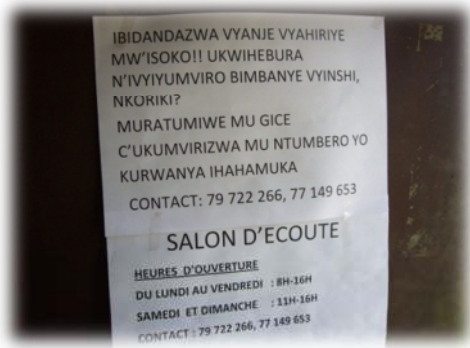 IBIDANDAZWA VYANJE VYAHIRIYE
MW'ISOKO!! UKWIHEBURA
N'IVYIYUMVIRO BIMBANYE VYINSHI,
NKORIKI?
MURATUMIWE MU GICE
C'UKUMVIRIZWA MU NTUMBERO YO
KURWANYA IHAHAMUKA
CONTACT: 79 722 266, 77 149 653
SALON D'ECOUTE
HEURES D'OUVERTURE
DU LUNDI AU VENDREDI : 8H-16H
SAMEDI ET DIMANCHE : 11H-16H
CONTACT : 79 722 266, 77 149 653